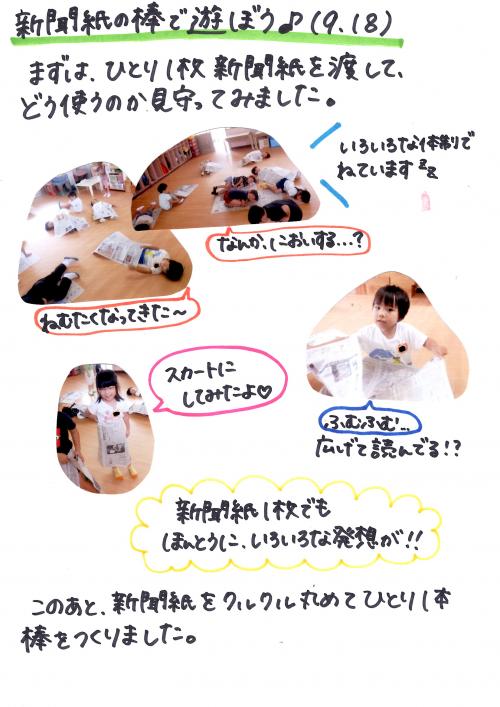 新聞紙の棒で遊ぼう♪(9.18)
まずは、ひとり1枚 新聞紙を渡して、
どう使うのか見守ってみました。
いろいろな体制で
ねています zz
なんか、においする…?
ねむたくなってきた〜
スカートに
してみたよ♡
ふむふむ…
広げて読んでる!?
新聞紙1枚でも
ほんとうに、いろいろな発想が!!
このあと、新聞紙をクルクル丸めてひとり1本
棒をつくりました。